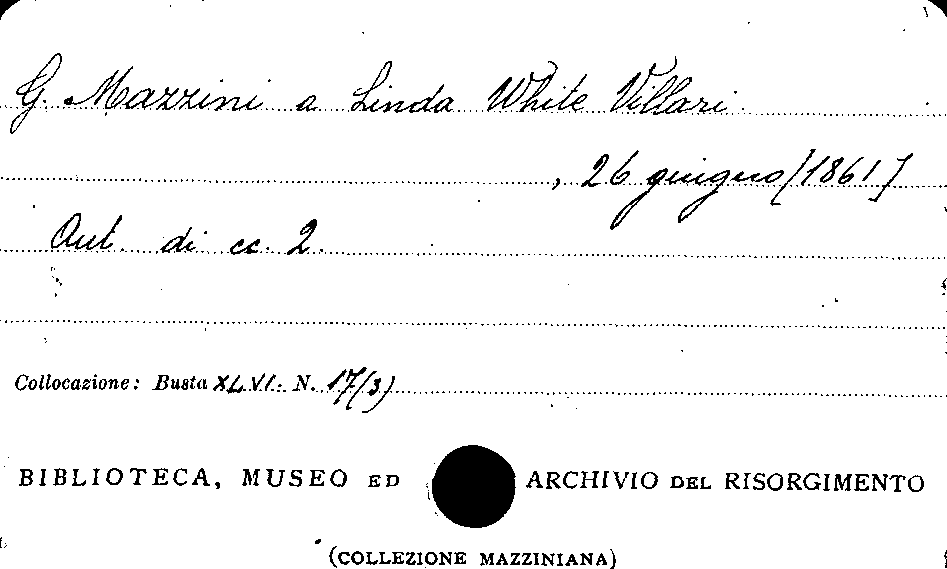 G. Mazzini a Linda White Villari
, 26 giugno [1861]
Aut. di cc. 2.
Collocazione: Busta XLVI. N. 17(3)
BIBLIOTECA, MUSEO ED ARCHIVIO DEL RISORGIMENTO
(COLLEZIONE MAZZINIANA)